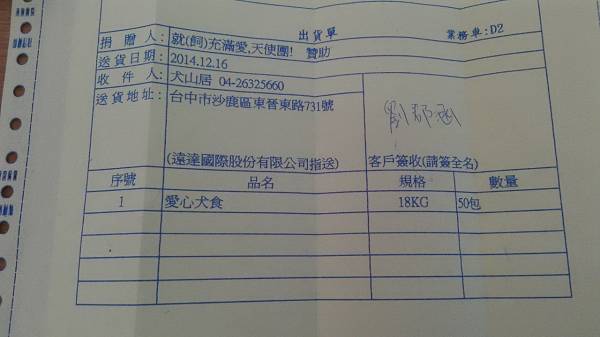 出貨單 業務車:D2
捐贈人: 就(飼)充滿愛,天使團! 贊助
送貨日期: 2014.12.16
收件人: 犬山居 04-26325660
送貨地址: 台中市沙鹿區東晉東路731號
(遠達國際股份有限公司指送) 客戶簽收(請簽全名)
序號 品名 規格 數量
1 愛心犬食 18KG 50包